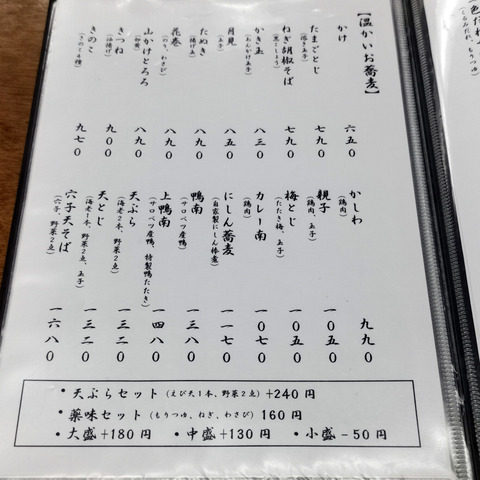 【温かいお蕎麦】
かけ 六五〇
たまごとじ(溶き玉子) 七九〇
ねぎ胡椒そば(黒こしょう) 七九〇
かき玉(あんかけ玉子) 八三〇
月見(玉子) 八五〇
たぬき(揚げ玉) 八九〇
花巻(のり、わさび) 八九〇
山かけとろろ(卵黄) 八九〇
きつね(油揚げ) 九〇〇
きのこ 九七〇
かしわ(鶏肉) 九九〇
親子(鶏肉、玉子) 一〇五〇
梅とじ(たたき梅、玉子) 一〇五〇
カレー南(鶏肉) 一〇七〇
にしん蕎麦(自家製にしん棒煮) 一一七〇
鴨南(サロベツ産鴨) 一三八〇
上鴨南(サロベツ産鴨、特製鴨たたき) 一四八〇
天ぷら(海老2本、野菜2点) 一三二〇
天とじ(海老1本、野菜2点、玉子) 一三二〇
穴子天そば(穴子、野菜2点) 一六八〇
・天ぷらセット(えび天1本、野菜2点)+240円
・薬味セット(もりつゆ、ねぎ、わさび)160円
・大盛+180円 ・中盛+130円 ・小盛-50円